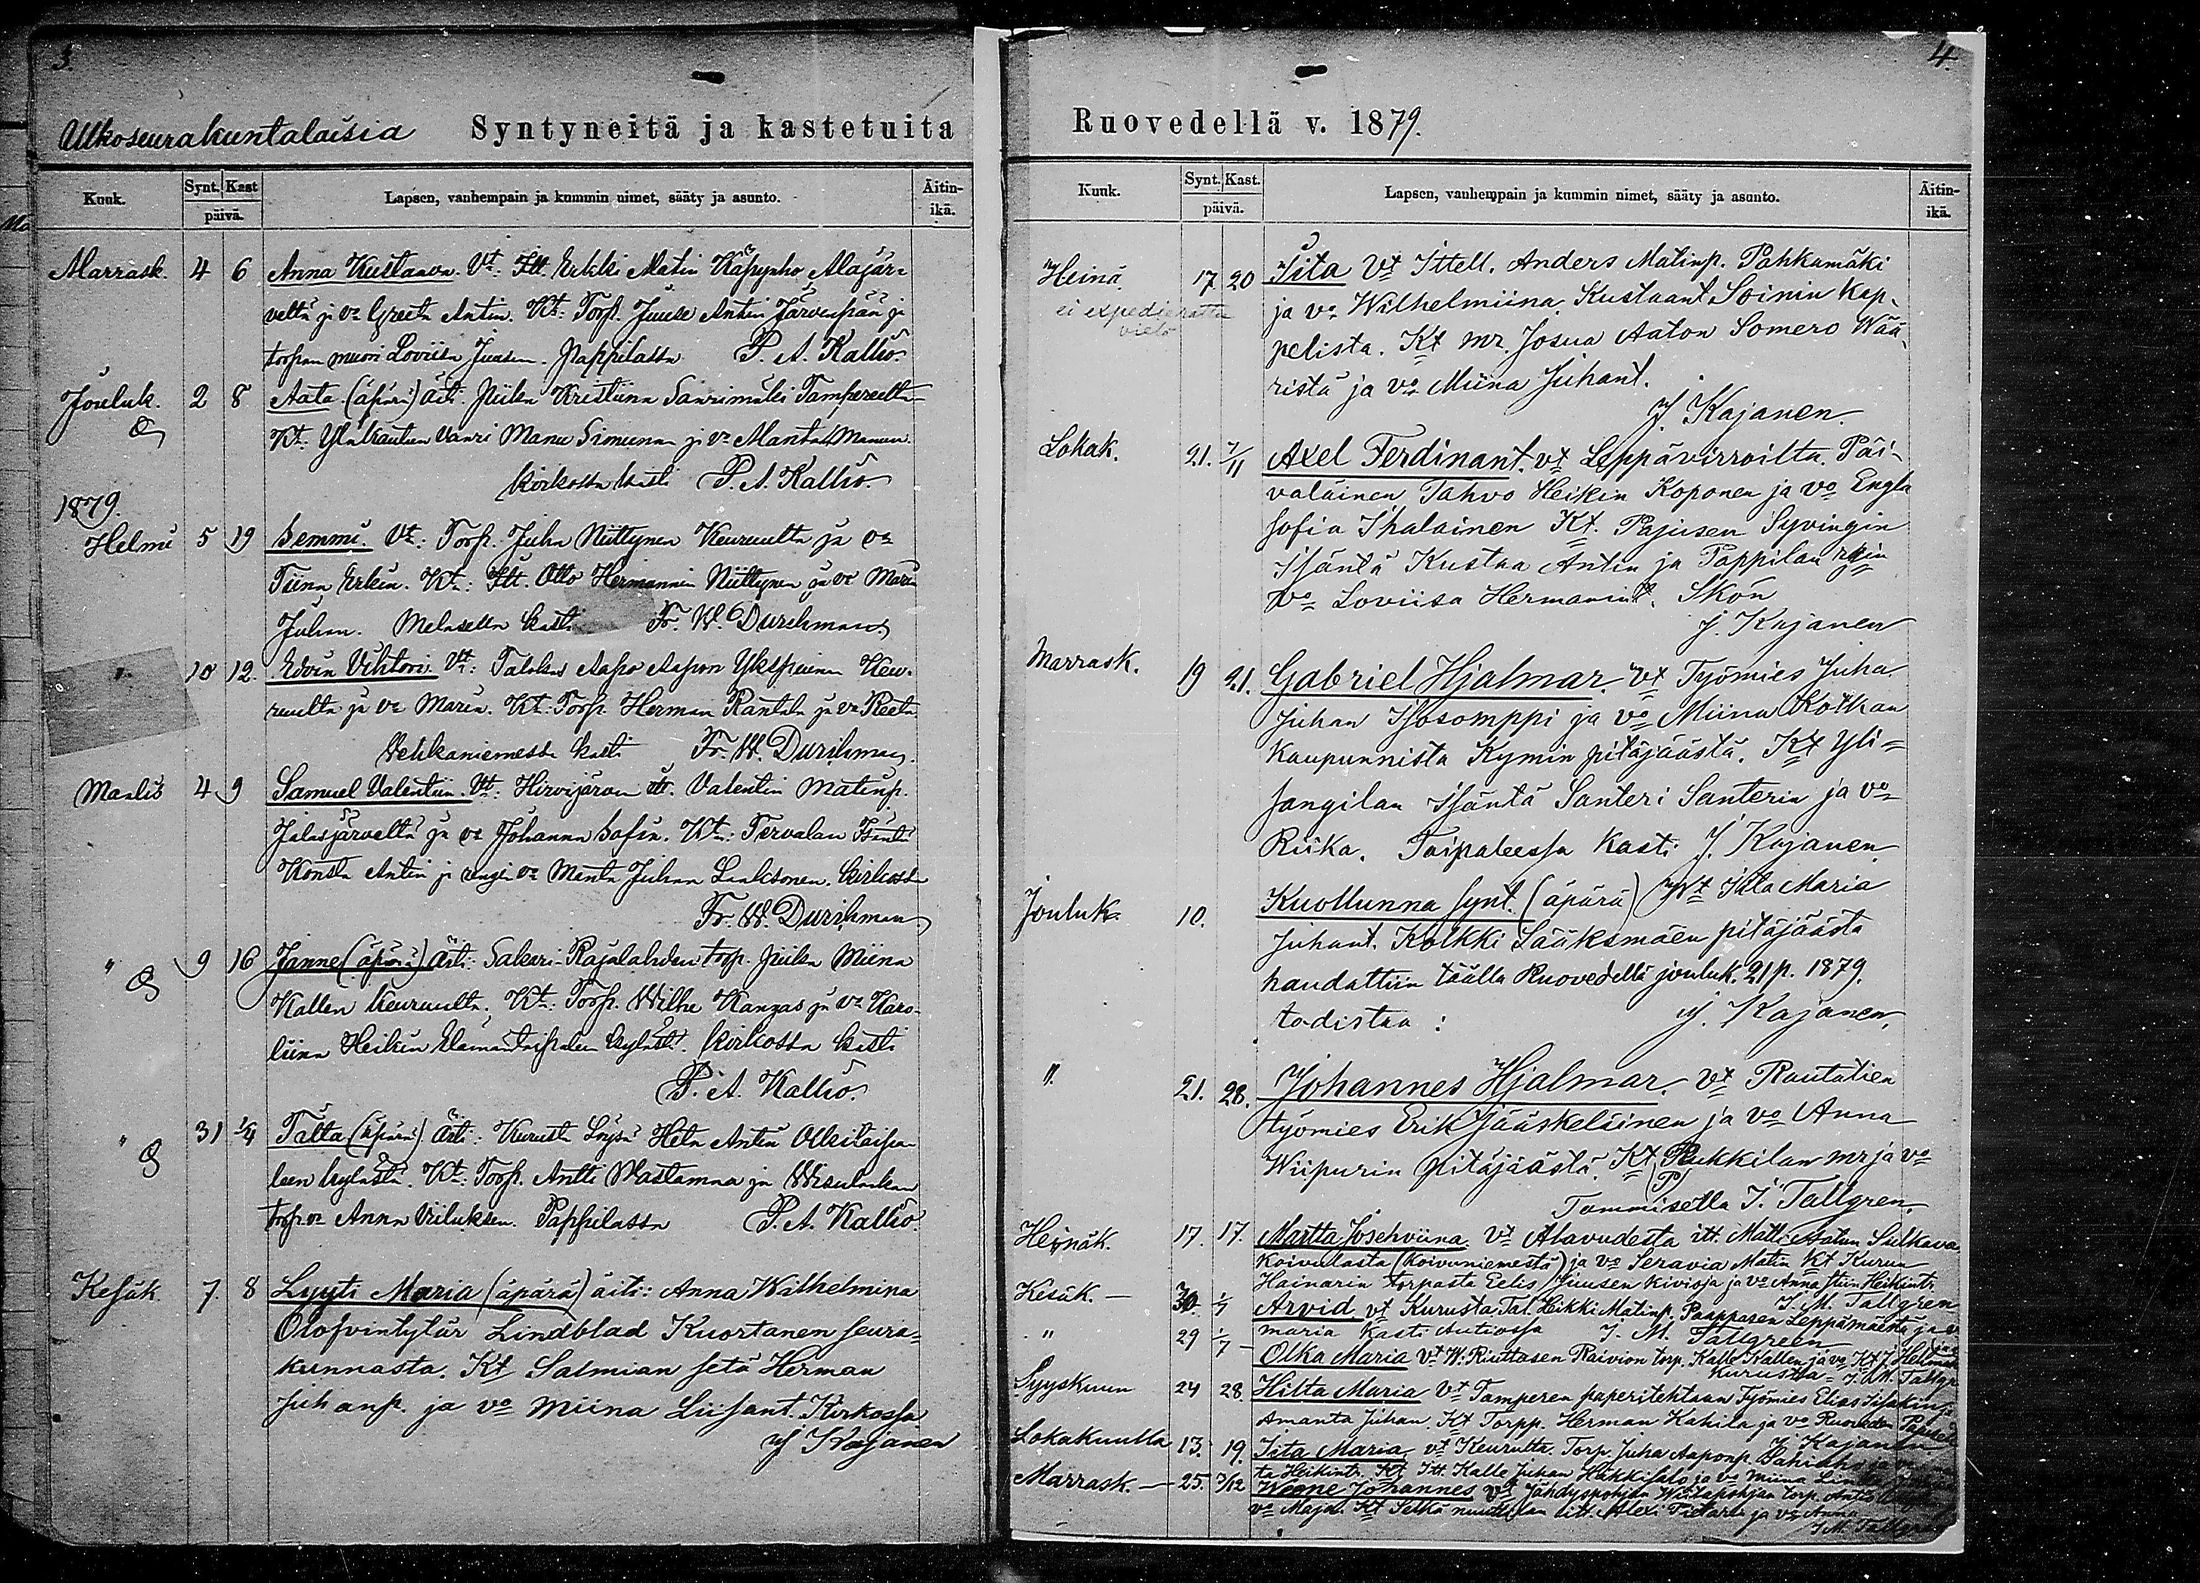 3.
Ulkoseurakuntalaisia Syntyneitä ja kastetuita
Kuuk. Synt. Kast päivä. Lapsen, vanhempain ja kummin nimet, sääty ja asunto. Äitin-ikä.
Marrask. 4 6 Anna Kustaava. Vt: Itt. Erkki Matin Käpynho Alajär-
veltä ja vo Greeta Antin. Kt: Torp. Juuse Antin Järvenpää ja
torpan muori Loviisa Juusen. Pappilassa P. A. Kallio.
Jouluk. 2 8 Aata (äpärä) äiti piika Kristiina Saarimäki Tampereelta
Kt. Manu Simunan ja vo Manta Manun.
kirkossa kasti P. A. Kallio.
1879.
Helmi 5 19 Semmi. Vt: Torp. Juha Niittynen Keuruulta ja vo
Tiina Erkin. Kt: Itt. Otto Hermannin Niittynen ja vo Maria
Juhan. kasti Fr. W. Durchman.
" 10 12. Edvin Vihtori. Vt: Aapo Aapon Ykspuinen Keu-
ruulta ja vo Maria. Kt: Torp. Herman Rantala ja vo Reeta
kasti Fr. W. Durchman.
Maalis 4 9 Samuel Valentiin. Vt: Hirvijärven itt. Valentin Matinp.
Jalasjärveltä ja vo Johanna Sofia. Kt: Tervalan Isäntä
Konsta Antin ja rengin vo Manta Juhan Laaksonen. Kirkossa
Fr. W. Durchman.
" 9 16 Janne (äpärä) Äiti: Sakari-Rajalahden torp. piika Miina
Kallen Keuruulta. Kt: Torp. Wilhe Kangas ja vo Karo-
liina Heikin kylästä. Kirkossa kasti
P. A. Kallio.
" 31 1/4 Tälta (äpärä) Äiti: Kurusta Heta Antin
leen kylästä. Kt: Torp. Antti Mastamaa ja
torp vo Anna Pappilassa P. A. Kallio
Kesäk 7 8 Lyyti Maria (äpärä) äiti: Anna Wilhelmina
Olofvintytär Lindblad Kuortanen seura-
kunnasta. Kt Salmian setä Herman
Juhanp. ja vo Miina Liisant. Kirkossa
J Kajanen
4.
Ruovedellä v. 1879.
Kuuk. Synt. Kast. päivä. Lapsen, vanhempain ja kummin nimet, sääty ja asunto. Äitin-ikä.
Heinä. 17. 20 Iita Vt Ittell. Anders Matinp. Pahkamäki
ei expedieratta ja vo Wilhelmiina Kustaant Soinin kap-
vielä
pelista. Kt mr. Josua Aaton Somero Wää-
ristä ja vo Miina Juhant.
J. Kajanen.
Lokak. 21. 7/11 Axel Ferdinant. vt Leppävirroilta. Päi-
väläinen Tahvo Heikin Koponen ja vo Engla
Sofia Ihalainen Kt. Pajusen Syvingin
Isäntä Kustaa Antin ja Pappilan rgin
vo Loviisa Hermanint. Skön
J. Kajanen
Marrask. 19 21. Gabriel Hjalmar. vt Työmies Juha
Juhan Isosomppi ja vo Miina Kotkan
Kaupunnista Kymin pitäjäästä. Kt Yli-
Jangilan Isäntä Santeri Santerin ja vo
Riika. Taipaleessa kasti J. Kajanen.
Jouluk. 10. Kuollunna synt. (äpärä) Vt Iita Maria
Juhant. Kolkki Sääksmäen pitäjäästä
haudattiin täällä Ruovedellä jouluk. 21 p. 1879.
todistaa: J. Kajanen.
". 21. 28. Johannes Hjalmar. vt Rautatien
työmies Erik Jääskeläinen ja vo Anna
Wiipurin pitäjäästä. Kt Pukkilan mr ja vo
Tommisella J. Tallgren.
Heinäk. 17. 17. Martta Josehviina. vt Alavudesta itt. Matti Aatun Sulkava
Koivulasta (Koivuniemestä) ja vo Seravia Matin Kt Kurun
Hainarin torpasta Eelis Juusen Kivioja ja vo Anna Stiin Heikint.
J. M. Tallgren
Kesäk. — 30. 1/7 Arvid. vt Kurusta Tal. Heikki Matinp. Paappasen Leppämäestä ja vo
maria Kasti Autiossa J. M. Tallgreen
. " 29 1/7 — Olka Maria vt W. Riuttasen Raivion torp. Kalle Kallen ja vo Kt J.
Kurusta — J. M. Tallgr
Syyskuun 24 28. Hilta Maria vt Tamperen paperitehtaan Työmies Elias Iisakin ja
Amanta Juhan. Kt Torpp. Herman Kahila ja vo Ruoveden
J. Kajanen
Lokakuulla 13. 19. Iita Maria vt Keurulta. Torp. Juha Aaponp.
ta Heikint. Kt Itt. Kalle Juhan Häkkisalo ja vo Miina
Marrask. — 25. 3/12 Weene Johannes vt Jähdyspohjan Wiitapohjan torp. Antti
vo Maja. Kt Selkä itt. Alexi Fietarin ja vo Anna
J. M. Tallgren